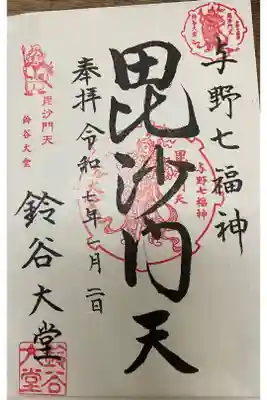 与野七福神
毘沙門天
奉拝 令和七年一月二日
鈴谷大堂
毘沙門天
鈴谷大堂
毘沙門天
与野七福神
鈴谷大堂